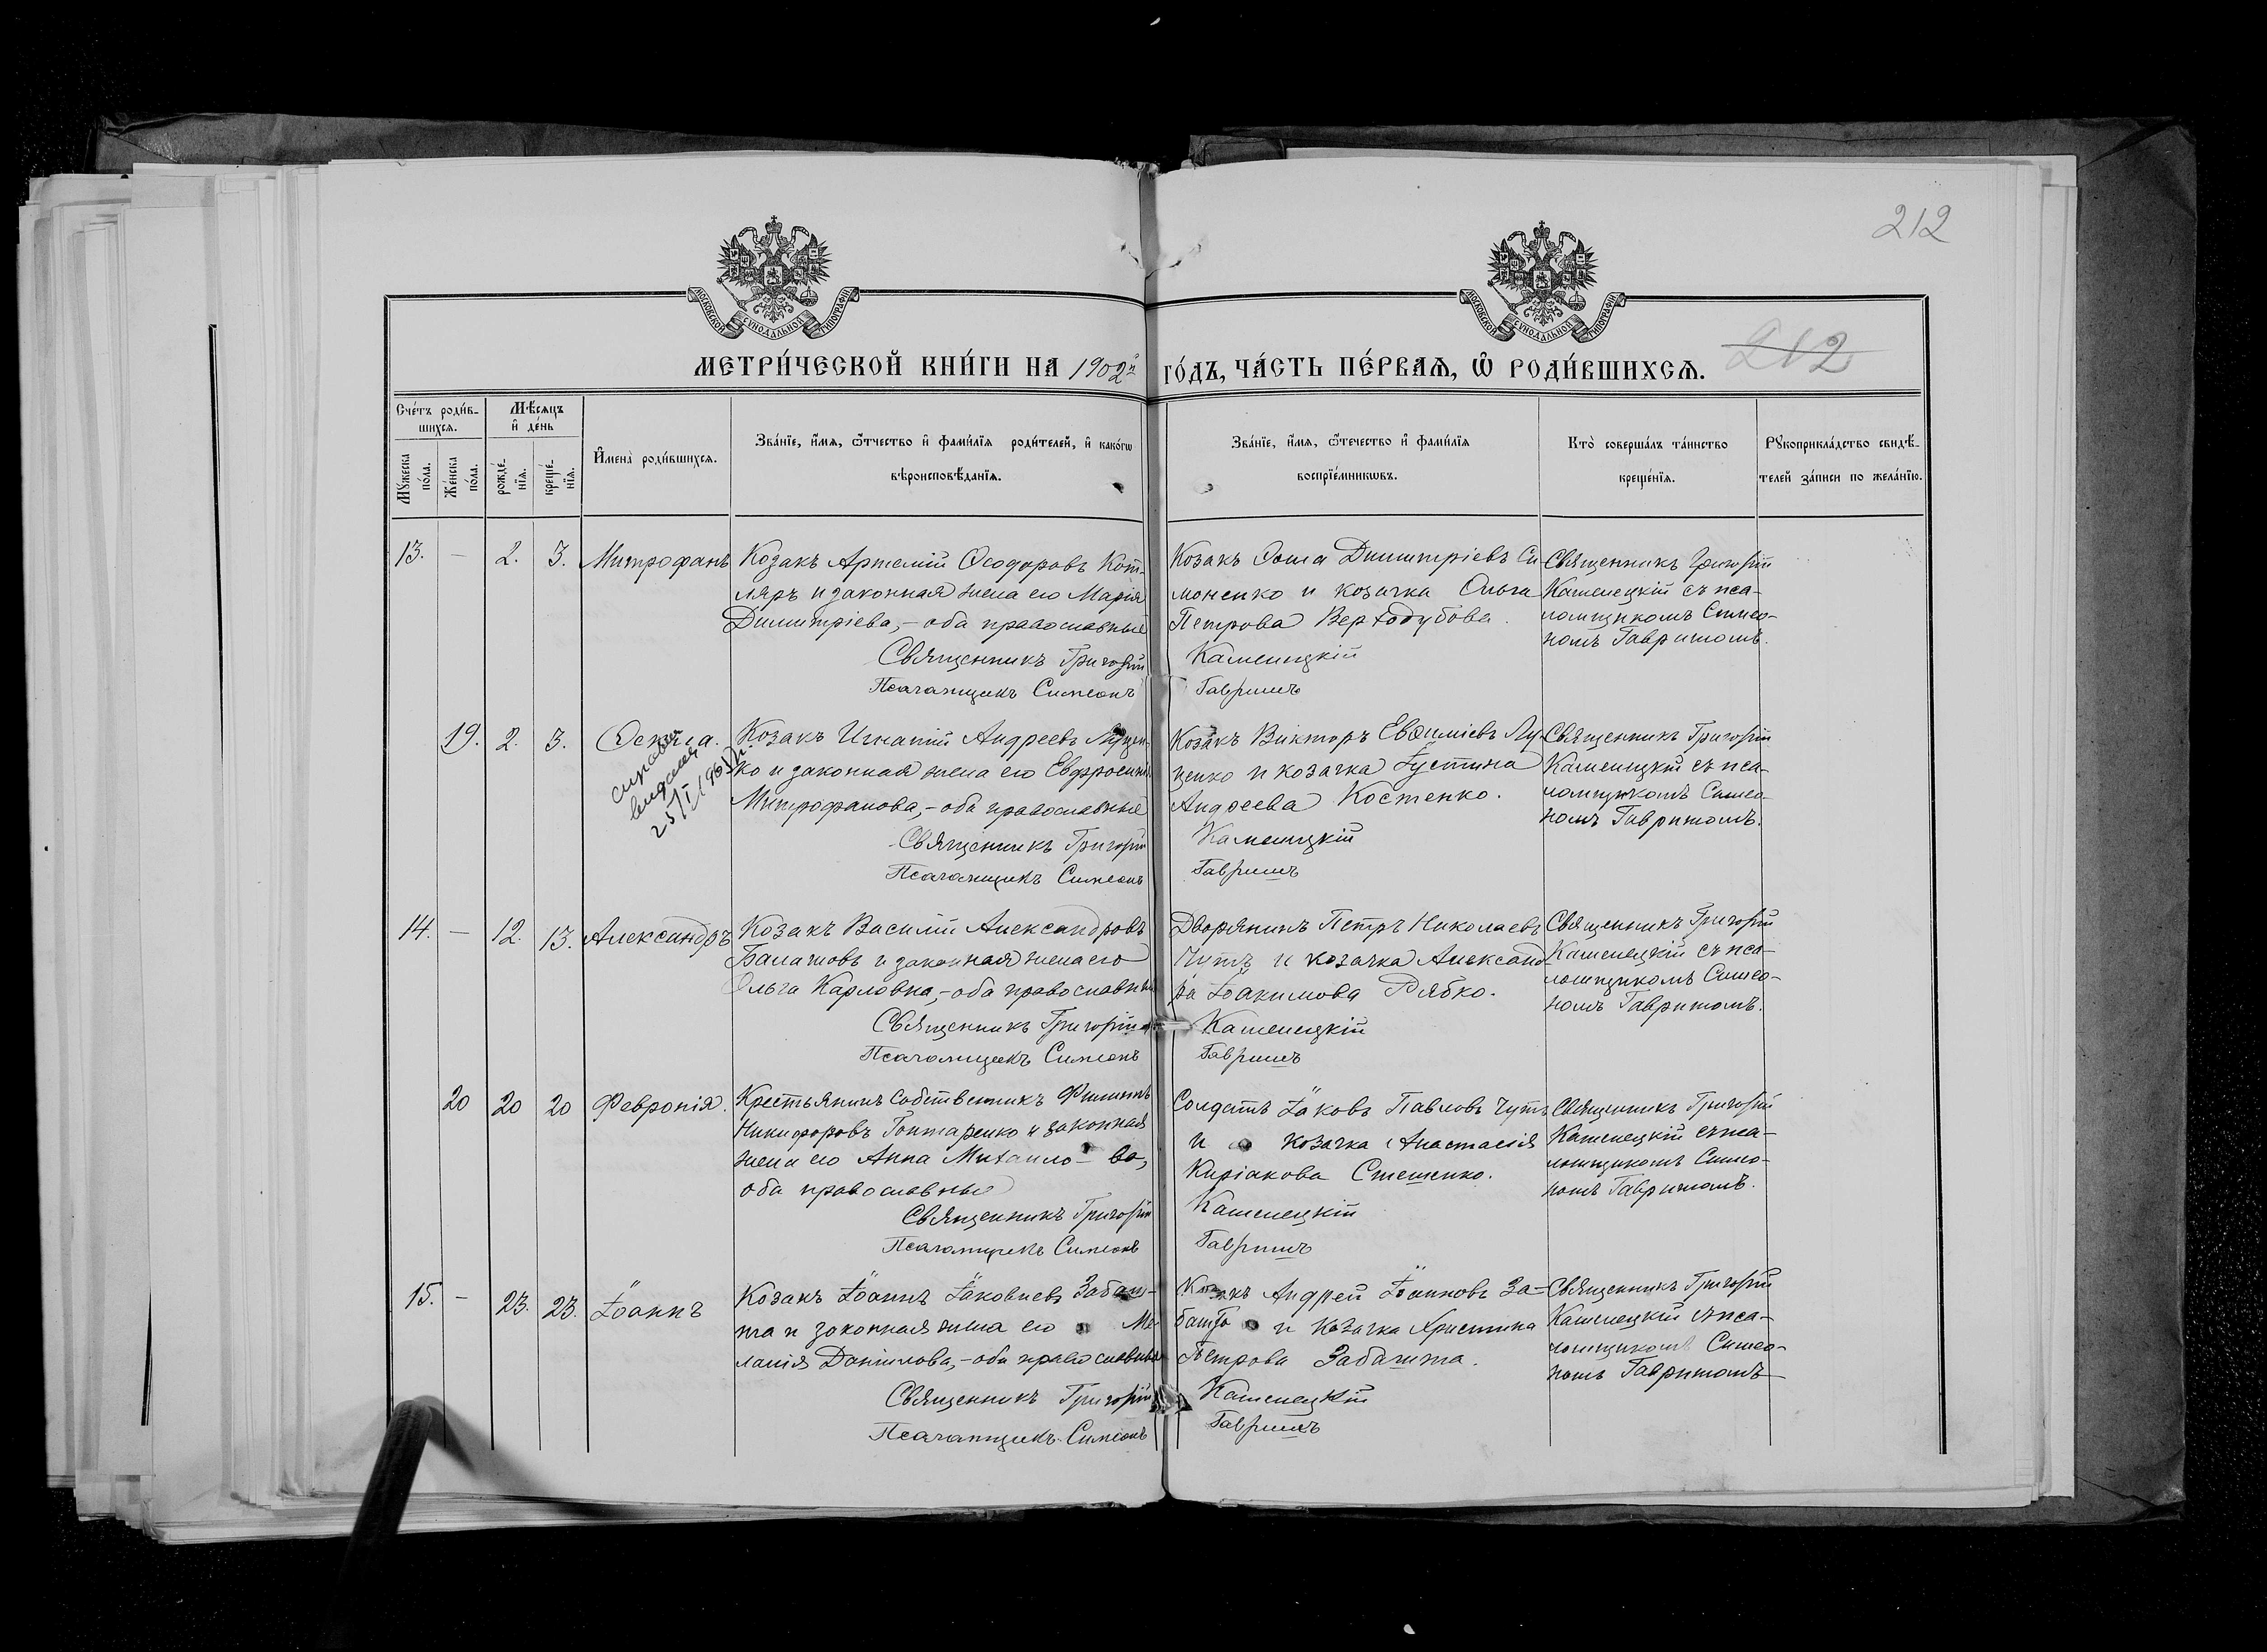 212
МОСКОВСКОЙ СѴНОДАЛЬНОЙ ТИПОГРАФІИ
МОСКОВСКОЙ СѴНОДАЛЬНОЙ ТИПОГРАФІИ
212
МЕТРИ́ЧЕСКОЙ КНИ́ГИ НА 1902й ГО́ДЪ, ЧА́СТЬ ПЕ́РВАѦ, Ѽ РОДИ́ВШИХСѦ.
Сче́тъ роди́в-
шихсѧ.
Мꙋ́жеска по́ла.
Же́нска по́ла.
Мѣ́сѧцъ
и҆ де́нь
рожде́-
нїѧ.
креще́-
нїѧ.
И҆мена̀ роди́вшихсѧ.
Зва́нїе, и҆́мѧ, ѻ҆́тчество и҆ фами́лїѧ роди́телей, и҆ како́гѡ
вѣроисповѣ́данїѧ.
Зва́нїе, и҆́мѧ, ѻ҆́течество и҆ фами́лїѧ
воспрїе́мникѡвъ.
Кто̀ соверша́лъ та́инство
креще́нїѧ.
Рꙋкоприкла́дство свидѣ́-
телей за́писи по жела́нїю.
13. – 2. 3. Митрофанъ
Козакъ Артемій Ѳеодоровъ Кот-
ляръ и законная жена его Марія
Димитріева,- оба православные
Священникъ Григорій Каменецкій
Псаломщикъ Симеонъ Гавришъ
Козакъ Ѳома Димитріевъ Си-
моненко и козачка Ольга
Петрова Вертодубова.
Священникъ Григорій
Каменецкій съ пса-
ломщикомъ Симео-
номъ Гавришомъ.
19. 2. 3. Ѳекла.
справка
выдана
Козакъ Игнатій Андреевъ Луцен-
ко и законная жена его Евфросинія
Митрофанова,- оба православные
Священникъ Григорій Каменецкій
Псаломщикъ Симеонъ Гавришъ
Козакъ Викторъ Евѳиміевъ Лу-
ценко и козачка Іустина
Андреева Костенко.
Священникъ Григорій
Каменецкій съ пса-
ломщикомъ Симео-
номъ Гавришомъ.
14. – 12. 13. Александръ
Козакъ Василій Александровъ
Балашовъ и законная жена его
Ольга Карловна,- оба православные
Священникъ Григорій Каменецкій
Псаломщикъ Симеонъ Гавришъ
Дворянинъ Петръ Николаевъ
и козачка Александ-
ра Іоакимова Рябко.
Священникъ Григорій
Каменецкій съ пса-
ломщикомъ Симео-
номъ Гавришомъ.
20 20 20 Февронія.
Крестьянинъ собственникъ Филиппъ
Никифоровъ Гонтаренко и законная
жена его Анна Михаило- ва,
оба православные
Священникъ Григорій Каменецкій
Псаломщикъ Симеонъ Гавришъ
Солдатъ Іаковъ Павловъ
и козачка Анастасія
Киріакова Стешенко.
Священникъ Григорій
Каменецкій съ пса-
ломщикомъ Симео-
номъ Гавришомъ.
15. – 23. 23. Іоаннъ
Козакъ Іоаннъ Іаковлевъ Забаш-
та и законная жена его Ме-
ланія Даніилова,- оба православные
Священникъ Григорій Каменецкій
Псаломщикъ Симеонъ Гавришъ
Козакъ Андрей Іоанновъ За-
башта и козачка Христина
Петрова Забашта.
Священникъ Григорій
Каменецкій съ пса-
ломщикомъ Симео-
номъ Гавришомъ